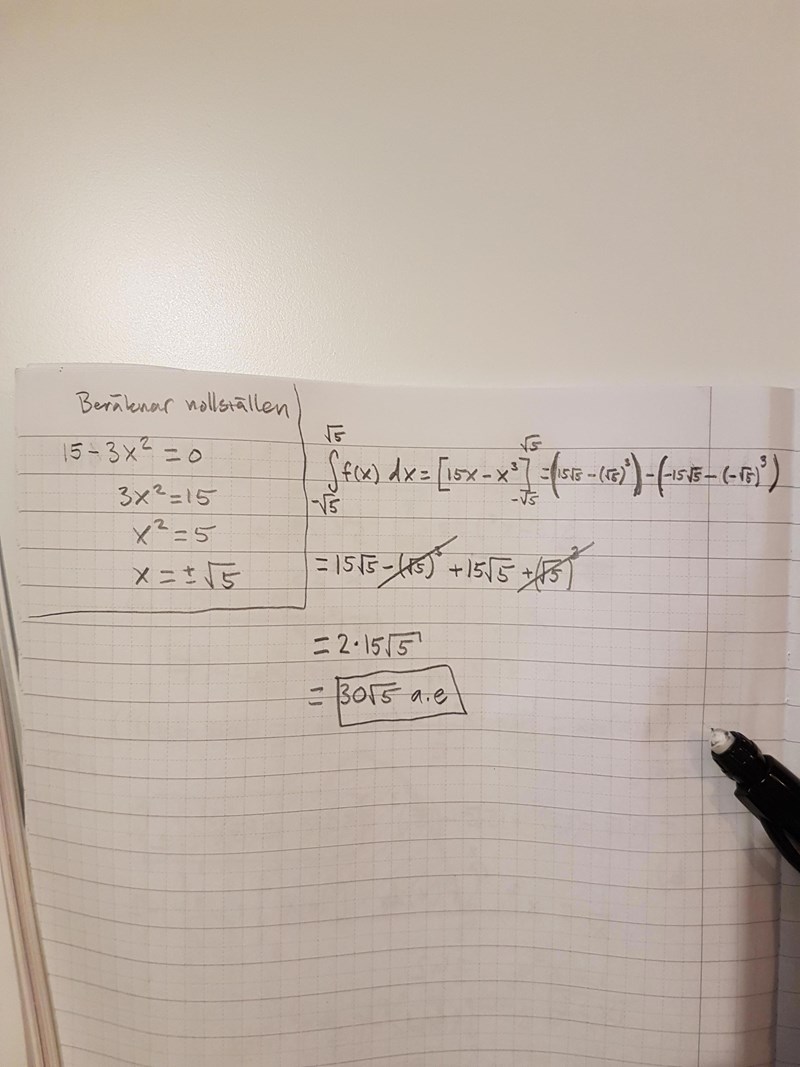 Beräknar nollställen
15 - 3x² = 0
3x² = 15
x² = 5
x = ±√5
∫_{-√5}^{√5} f(x) dx = [15x - x³]_{-√5}^{√5} = (15√5 - (√5)³) - (-15√5 - (-√5)³)
= 15√5 - (√5)³ + 15√5 + (√5)³
= 2·15√5
= 30√5 a.e